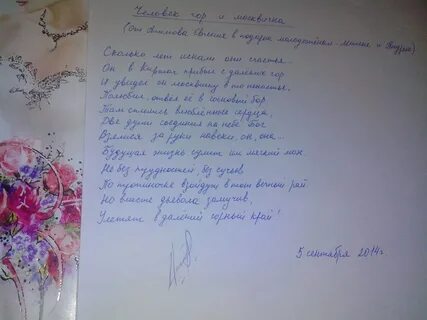 Человек гор и москвичка
(От Ахилова Евгения в подарок молодожёнам - Милене и Андрею)
Сколько лет искали они счастья...
Он в Киржач прибыл с далёких гор
И увидел он москвичку в то ненастье,
Полюбил, отвёл её в сосновый бор.
Там слились влюблённые сердца,
Две души соединил на небе Бог
Взялись за руки навеки он, она...
Будущая жизнь сулит им мягкий мох.
Не без трудностей, без сучьев
По тропиночке взойдут в тот вечный рай.
Но вместе дьявола замучив,
Улетят в далёкий горный край!
5 сентября 2014г.